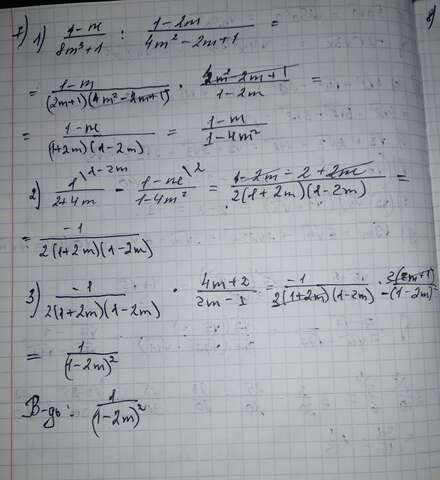 7) 1) (1-m)/(8m³+1) : (1-2m)/(4m²-2m+1) =
= (1-m)/((2m+1)(4m²-2m+1)) · (4m²-2m+1)/(1-2m) =
= (1-m)/((1+2m)(1-2m)) = (1-m)/(1-4m²)
2) 1/(2+4m) \1-2m - (1-m)/(1-4m²) \2 = (1-2m-2+2m)/(2(1+2m)(1-2m)) =
= -1/(2(1+2m)(1-2m))
3) -1/(2(1+2m)(1-2m)) · (4m+2)/(2m-1) = -1/(2(1+2m)(1-2m)) · 2(2m+1)/(-(1-2m))
= 1/(1-2m)²
В-дь: 1/(1-2m)²
8)